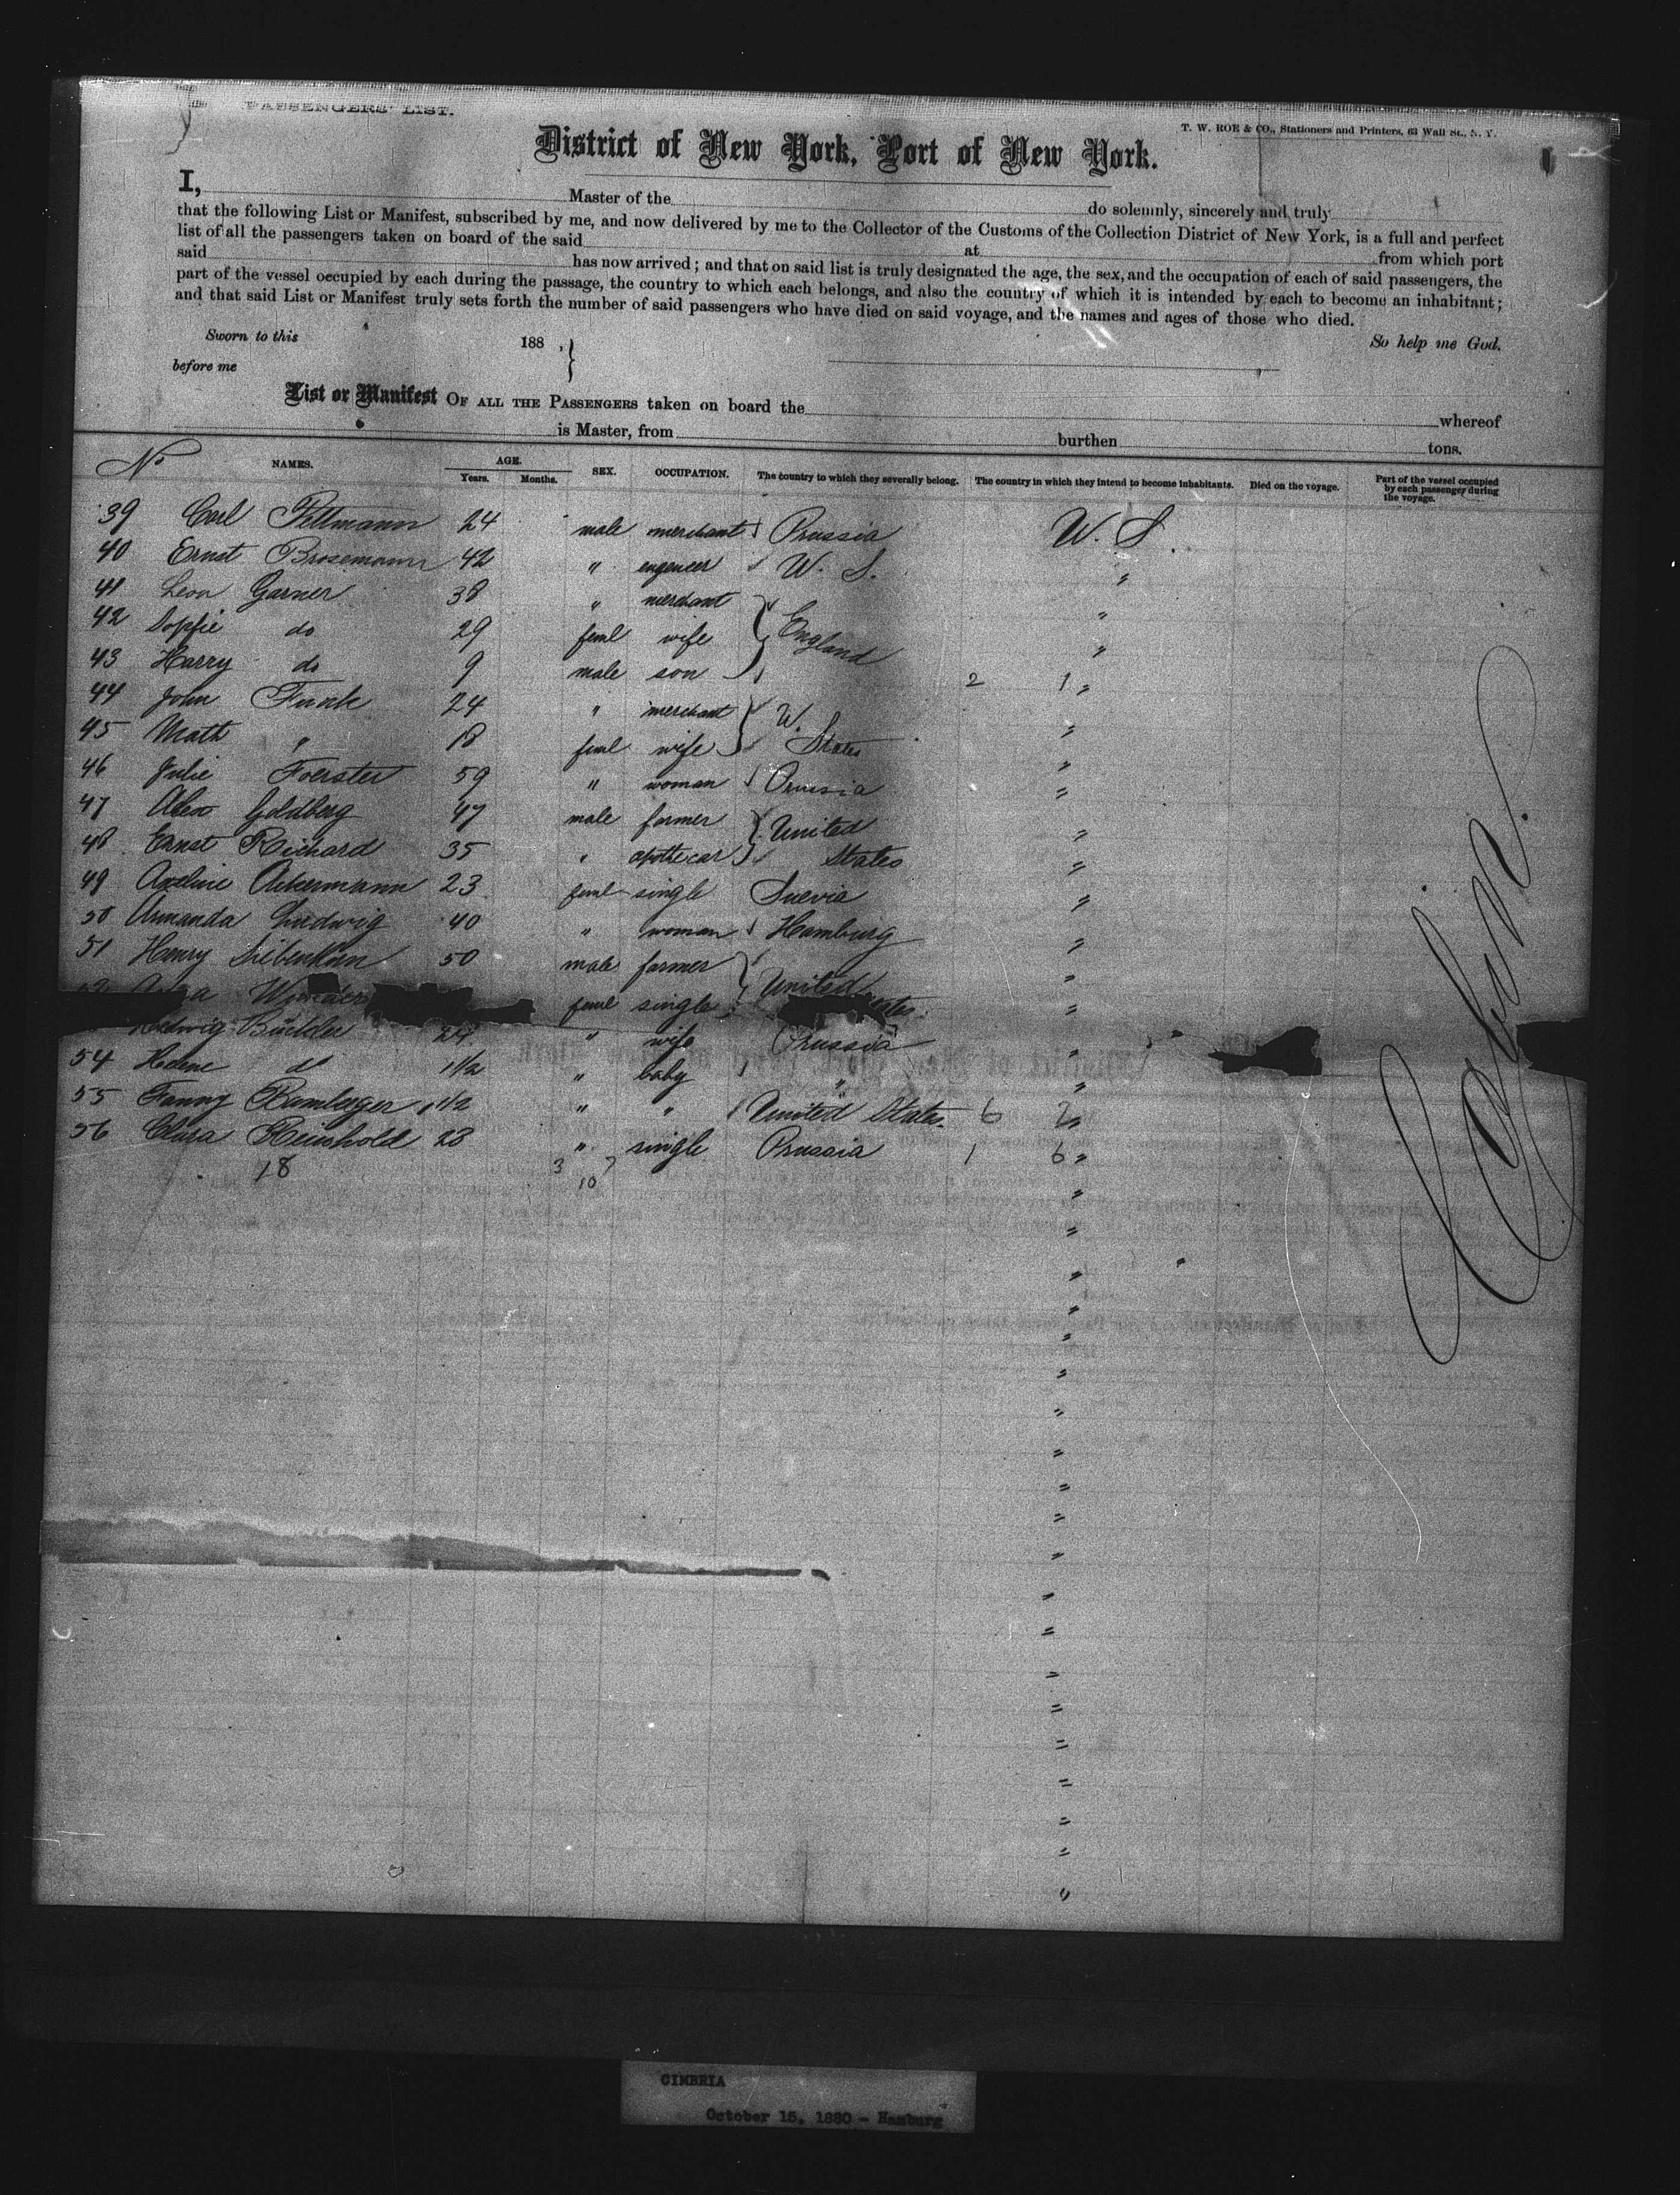 PASSENGERS' LIST.
T. W. ROE & CO., Stationers and Printers, 63 Wall St., N. Y.
District of New York, Port of New York.
I, Master of the do solemnly, sincerely and truly
that the following List or Manifest, subscribed by me, and now delivered by me to the Collector of the Customs of the Collection District of New York, is a full and perfect
list of all the passengers taken on board of the said at from which port
said has now arrived; and that on said list is truly designated the age, the sex, and the occupation of each of said passengers, the
part of the vessel occupied by each during the passage, the country to which each belongs, and also the country of which it is intended by each to become an inhabitant;
and that said List or Manifest truly sets forth the number of said passengers who have died on said voyage, and the names and ages of those who died.
Sworn to this 188 , So help me God.
before me
List or Manifest OF ALL THE PASSENGERS taken on board the whereof
is Master, from burthen tons.
No NAMES. AGE. Years. Months. SEX. OCCUPATION. The country to which they severally belong. The country in which they intend to become inhabitants. Died on the voyage. Part of the vessel occupied by each passenger during the voyage.
39 Carl 24 male merchant Prussia U. S.
40 Ernst Brosemann 42 " engeneer U. S. "
41 Leon Garner 38 " merchant England "
42 Sopfie do 29 feml wife "
43 Harry do 9 male son 2 1 "
44 John Funk 24 " merchant U. States "
45 Math " 18 feml wife "
46 Julie Foerster 59 " woman Prussia "
47 Alex Goldberg 47 male farmer United States "
48 Ernst Richard 35 " apothecar "
49 Axeline Ackermann 23 feml single Suevia "
50 Armanda Ludwig 40 " woman Hamburg "
51 Henry 50 male farmer United "
feml single "
Hedwig 24 " wife Prussia "
54 Helene d 1 1/2 " baby " "
55 Fanny Bamberger 1 1/2 " " United States 6 2 "
56 Clara Reinhold 23 " single Prussia 1 6 "
18 3 7
10
Cabin.
CIMBRIA
October 15, 1880 - Hamburg